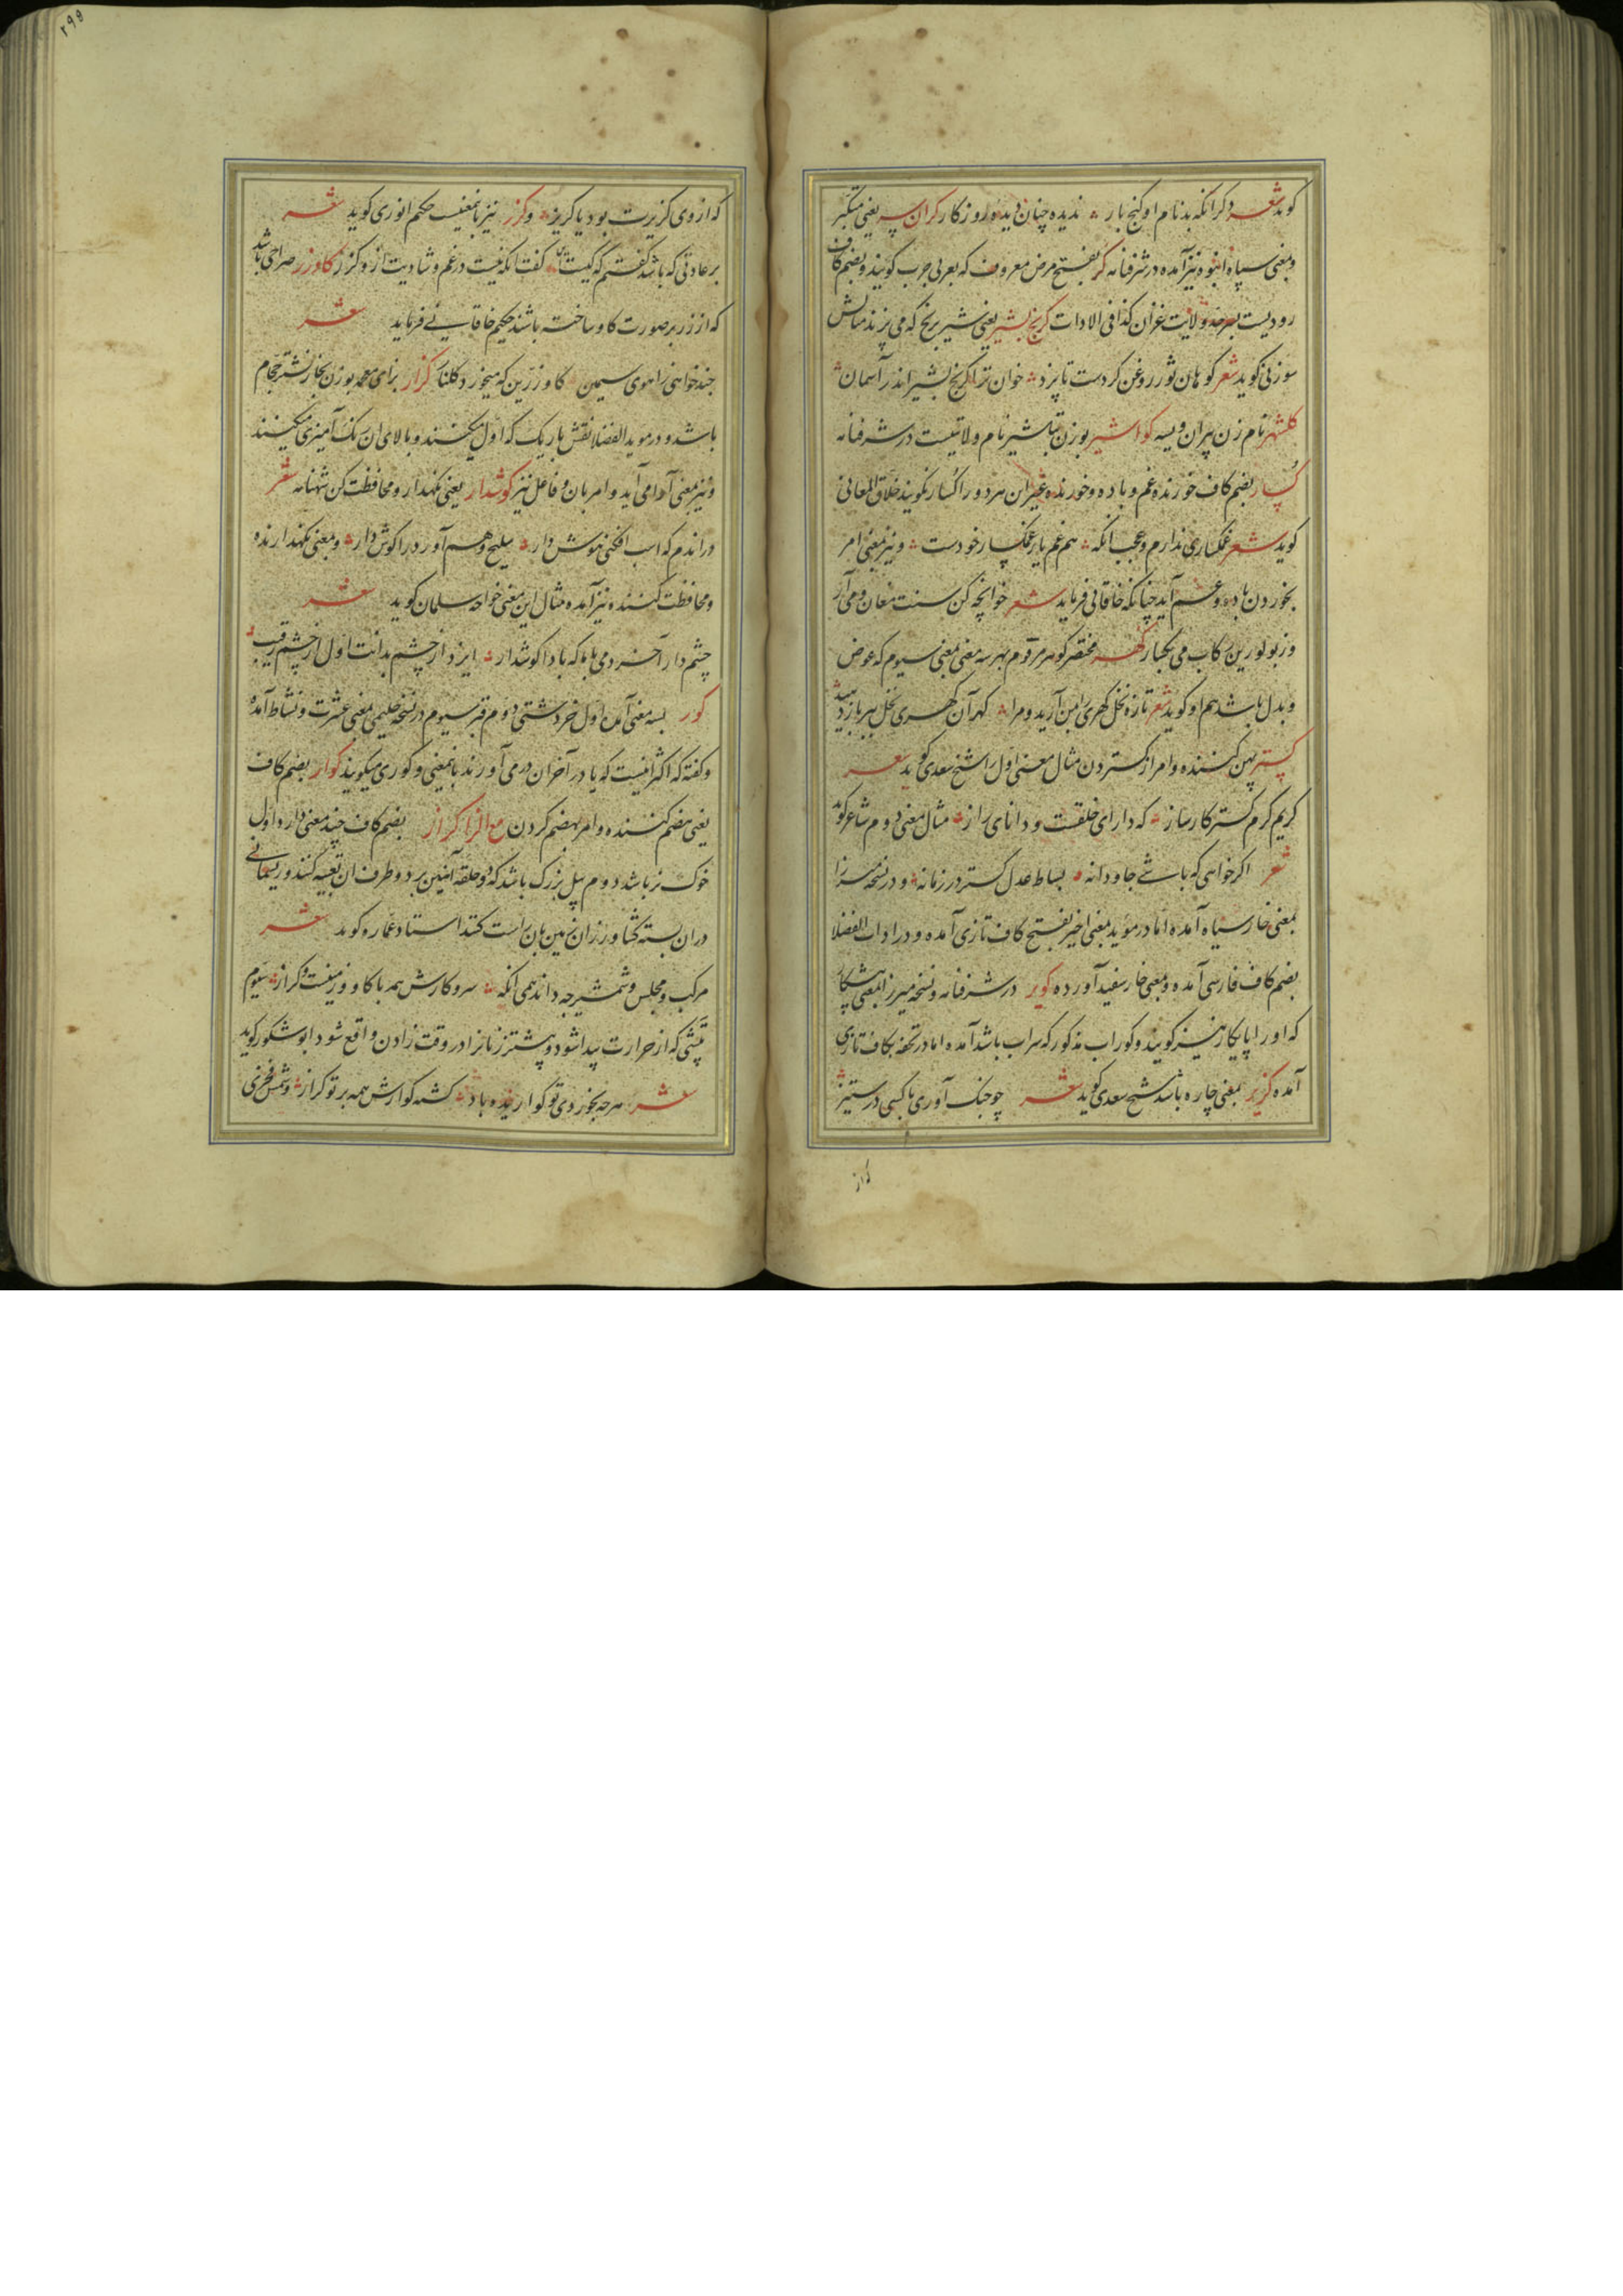 کوید شعر دکر انکه بدنام او کنج بار ندیده چنان دیده روزکار کران سر یعنی متکبر
و بمعنی سپاه انبوه نیز آمده در شرفنامه کر بفتح مرض معروف که بعربی جرب کویند و بضم کاف
رودیست بسرحد ولایت غزان کذا فی الادات کرنج بشیر یعنی شیر برنج که می پزند مثالش
سوزنی کوید شعر کوهان ثور روغن کردست تا پزد خوان ترا کرنج بشیر اندر آسمان
کلشهر نام زن پیران ویسه کواشیر بوزن تباشیر نام ولایتیست در شرفنامه
کسار بضم کاف خورنده غم و باده و خورنده غیر ان هر دو را کسار نکویند خلاق المعانی
کوید شعر غمکساری ندارم و عجب انکه هم غم یار غمکسار خودست و نیز بمعنی امر
بخوردن باده و غم آید چنانکه خاقانی فرماید شعر خوانچه کن سنت مغان و می آر
وز بلورین رکاب می بکسار کهر مختصر کوهر مرقوم بهر سه معنی بمعنی سیوم که عوض
و بدل باشد هم او کوید شعر تازه نخل کهری را بمن آرید و مرا کهر آن کهری نخل ببر باز دهید
کستر پهن کننده و امر از کستردن مثال معنی اول را شیخ سعدی کوید شعر
کریم کرم کستر کارساز که دارای خلقست و دانای راز مثال معنی دوم شاعر کوید
شعر اکر خواهی که باشی جاودانه بساط عدل کستر در زمانه و در نسخه میرزا
بمعنی خار سیاه آمده اما در موید بمعنی اخیر بفتح کاف تازی آمده و در ادات الفضلا
بضم کاف فارسی آمده و بمعنی خار سفید آورده کویر در شرفنامه و نسخه میرزا بمعنی پیشکار
که او را پایکار نیز کویند و کوراب مذکور که سراب باشد آمده اما در تحفه بکاف تازی
آمده کزیر بمعنی چاره باشد شیخ سعدی کوید شعر چو جنک آوری با کسی در ستیز
که از وی کزیرت بود یا کریز و کزر نیز بمعنیست حکیم انوری کوید شعر
بر عادتی که باشد کفتم که کیست این کفت انکه نیست در غم و شادیت ازو کزر کاو زر صراحی باشد
که از زر بر صورت کاو ساخته باشند حکیم خاقانی فرماید شعر
چند خواهی ز اهوی سیمین کاو زرین که میخورد کلنار کزار بزای معجمه بوزن بخار نشتر حجام
باشد و در موید الفضلا نقش باریک که اول میکنند و بالای ان رنک آمیزی میکنند
و نیز بمعنی ادا می آید و امر بان و فاعل نیز کوشدار یعنی نکهدار و محافظت کن شهنامه شعر
در اندم که اسب افکنی هوش دار سلیح و هم آورد را کوش دار و بمعنی نکهدارنده
و محافظت کننده نیز آمده مثال این معنی خواجه سلمان کوید شعر
چشم دار آخر دمی با ما که بادا کوشدار ایزد از چشم بدانت اول از چشم رقیب
کور بسه معنی آمده اول خر دشتی دوم قبر سیوم در نسخه حلیمی بمعنی عشرت و نشاط آمده
و کفته که اکثر انیست که یا در آخر ان در می آورند بانمعنی و کوری میکویند کوار بضم کاف
یعنی هضم کننده و امر بهضم کردن مع الزا کراز بضم کاف چند معنی دارد اول
خوک نر باشد دوم بیل بزرک باشد که دو حلقه آهنین بر دو طرف ان تعبیه کنند و ریسمانی
دران بسته کشاورزان زمین بان راست کنند استاد عماره کوید شعر
مرکب و مجلس و شمشیر چه داند همی انکه سر و کارش همه با کاو و زمینست و کراز سیوم
تپشی که از حرارت پیدا شود و پیشتر زنانرا در وقت زادن واقع شود ابو شکور کوید
شعر هرچه بخوردی تو کوارنده باد کشته کوارش همه بر تو کراز و شمس فخری
که از
۲۹۹